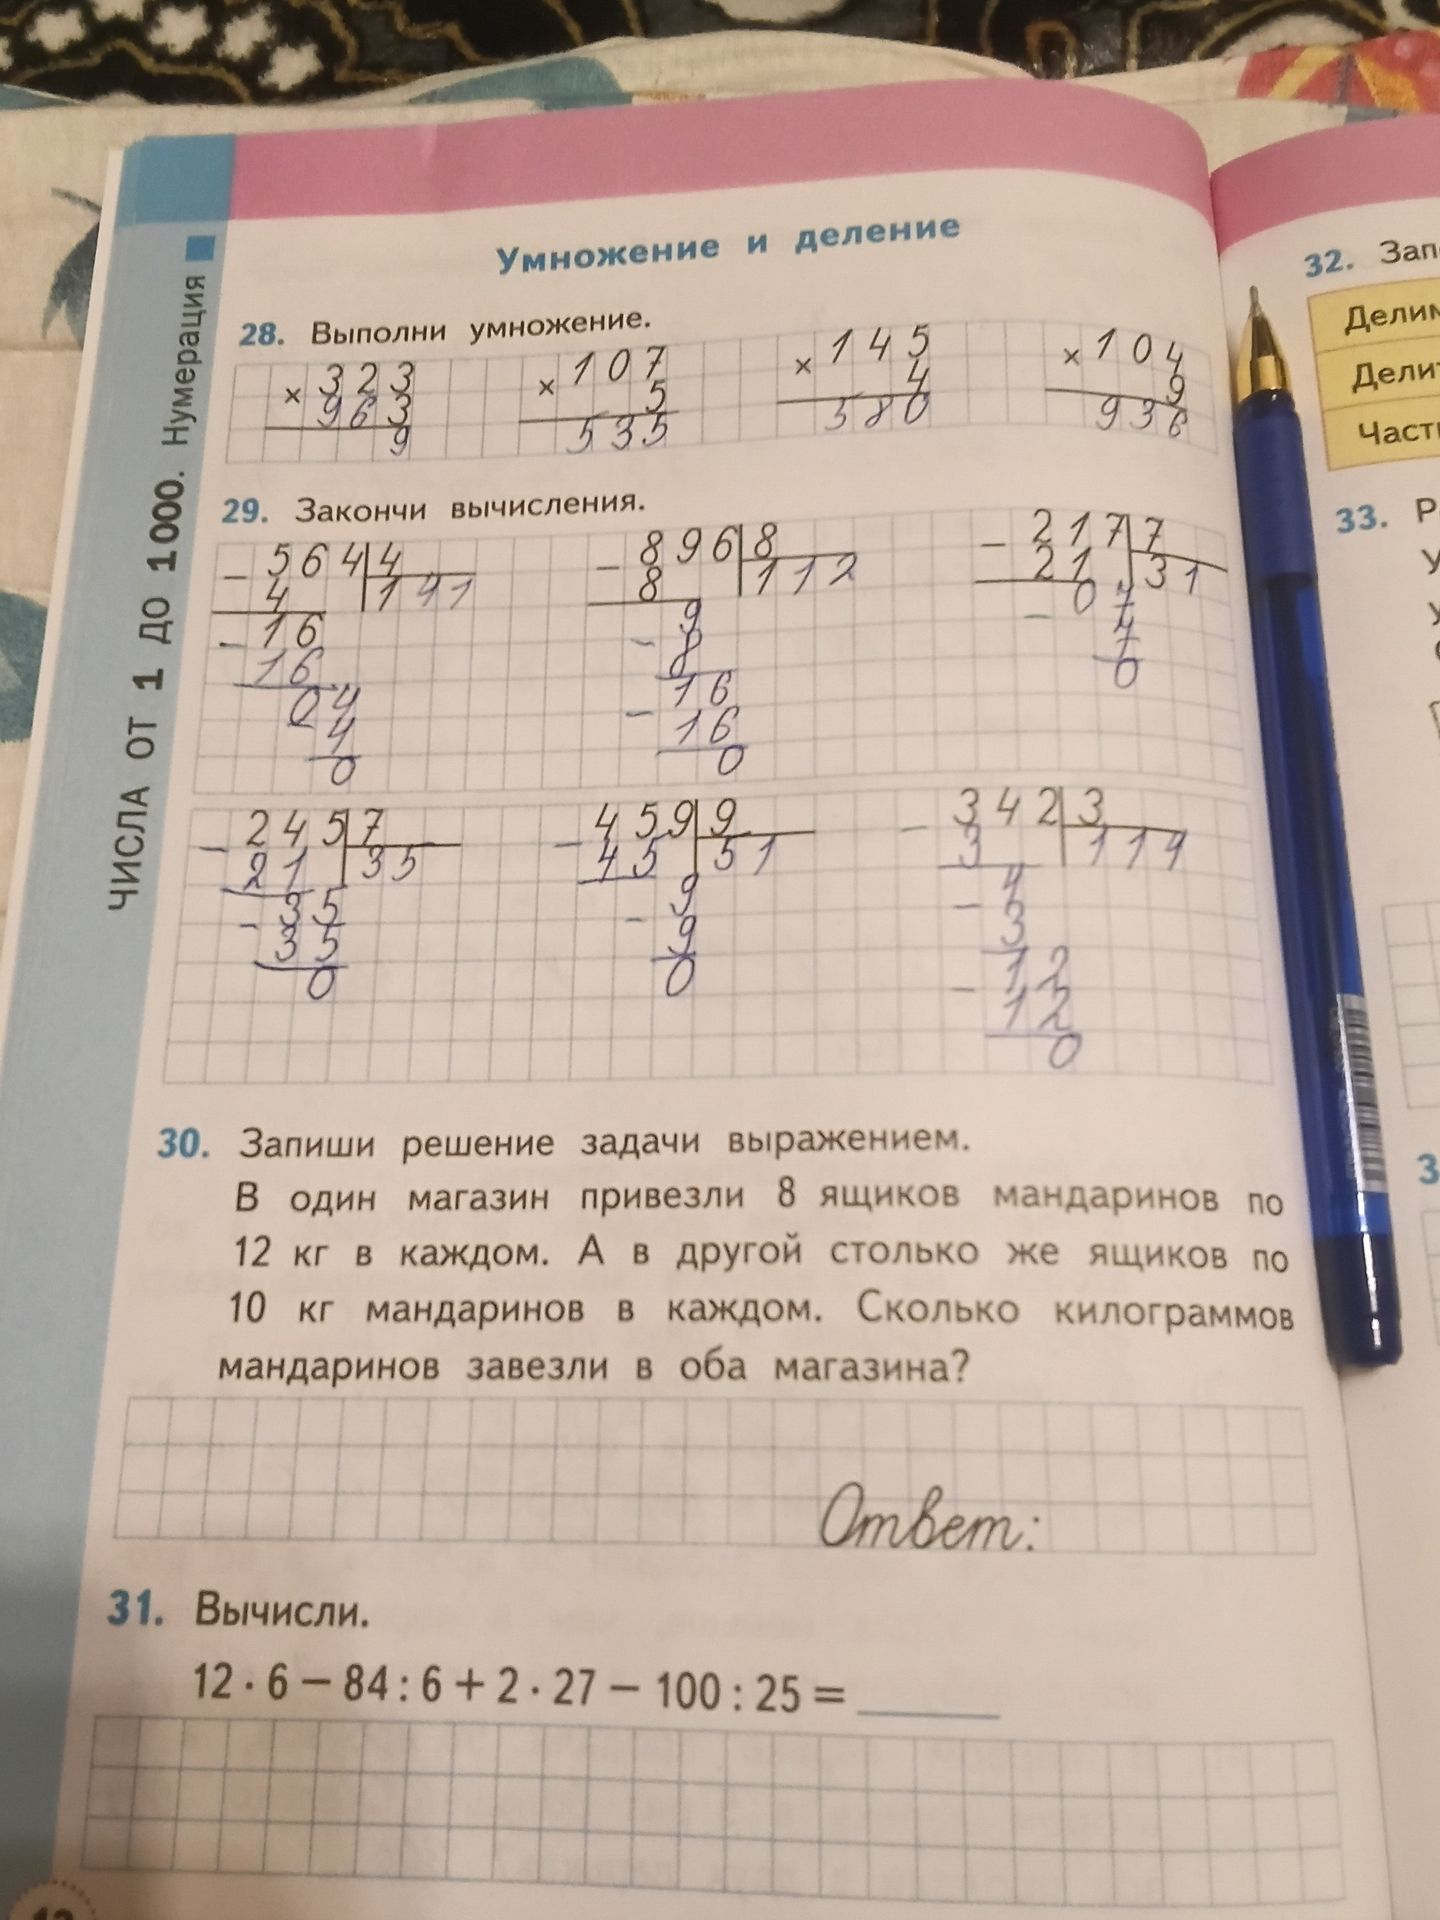 ЧИСЛА ОТ 1 ДО 1000. Нумерация
Умножение и деление
28. Выполни умножение.
× 323 × 107 × 145 × 104
96 3 5 4 9
9 535 580 936
29. Закончи вычисления.
− 564 4 − 896 8 − 217 7
4 141 8 112 21 31
− 16 9 07
16 − 8 − 7
04 16 0
4 − 16
0 0
− 245 7 − 459 9 − 342 3
21 35 45 51 3 114
− 35 9 4
35 − 9 − 3
0 0 12
− 12
0
30. Запиши решение задачи выражением.
В один магазин привезли 8 ящиков мандаринов по
12 кг в каждом. А в другой столько же ящиков по
10 кг мандаринов в каждом. Сколько килограммов
мандаринов завезли в оба магазина?
Ответ:
31. Вычисли.
12 · 6 − 84 : 6 + 2 · 27 − 100 : 25 =
32.
33.